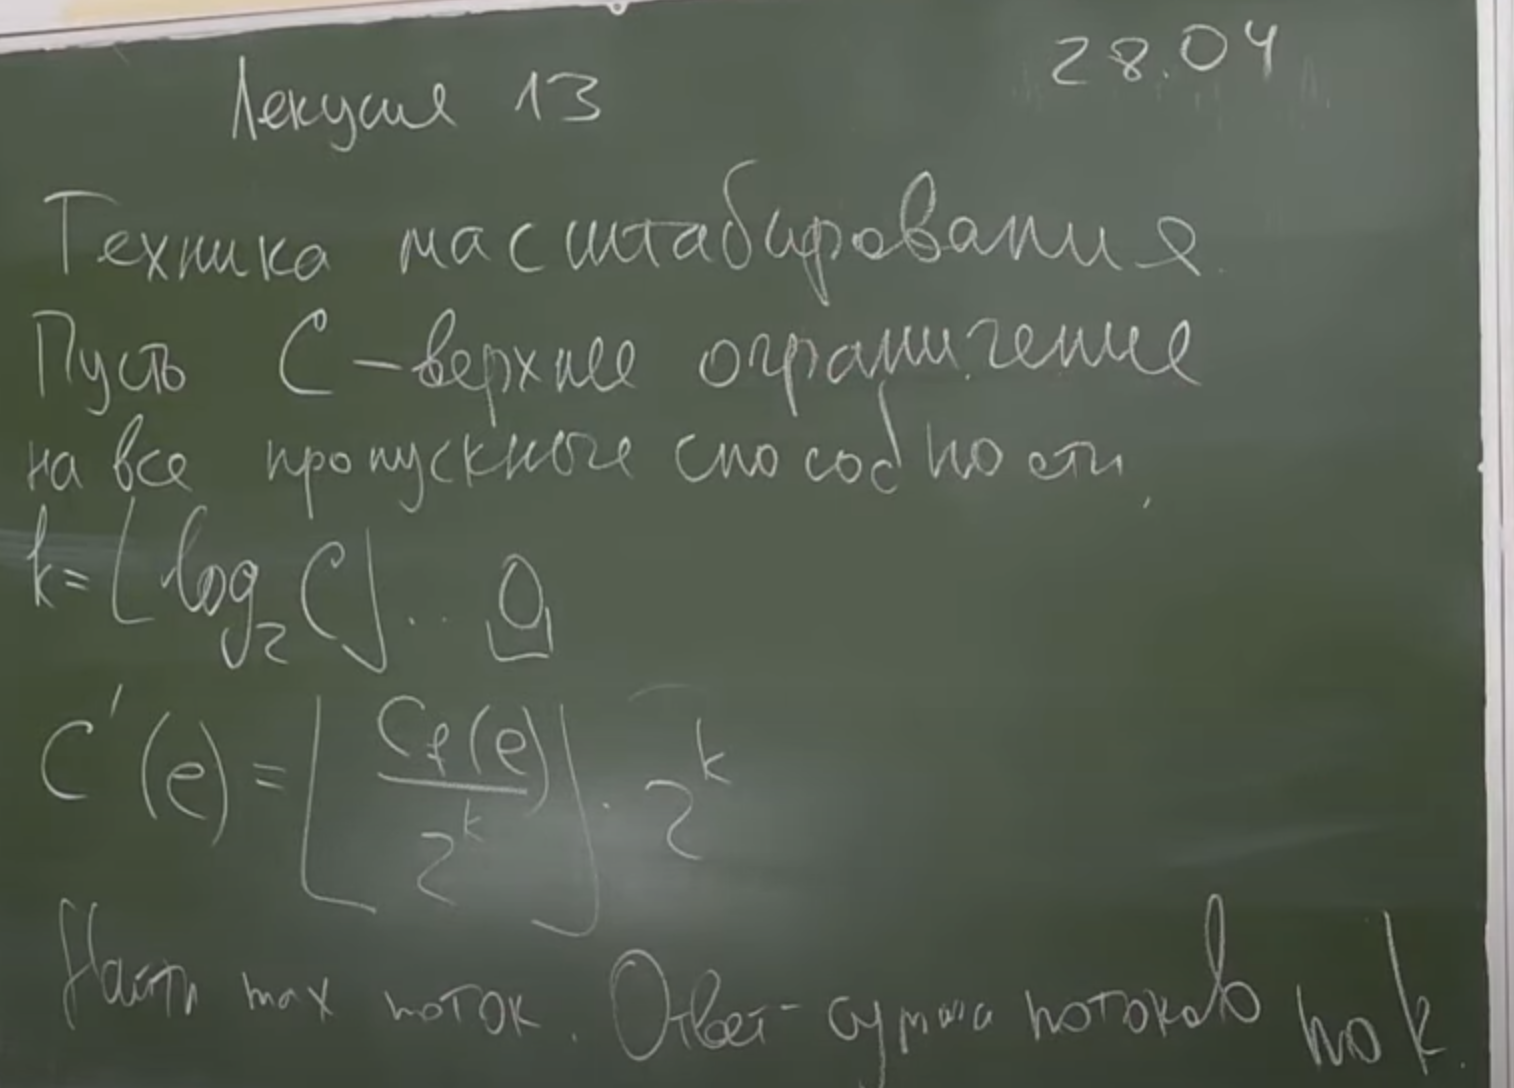 Лекция 13
28.04
Техника масштабирования.
Пусть C – верхнее ограничение
на все пропускные способности,
k = ⌊log₂ C⌋ ... 0
C'(e) = ⌊C_f(e) / 2^k⌋ · 2^k
Найти max поток. Ответ - сумма потоков по k.